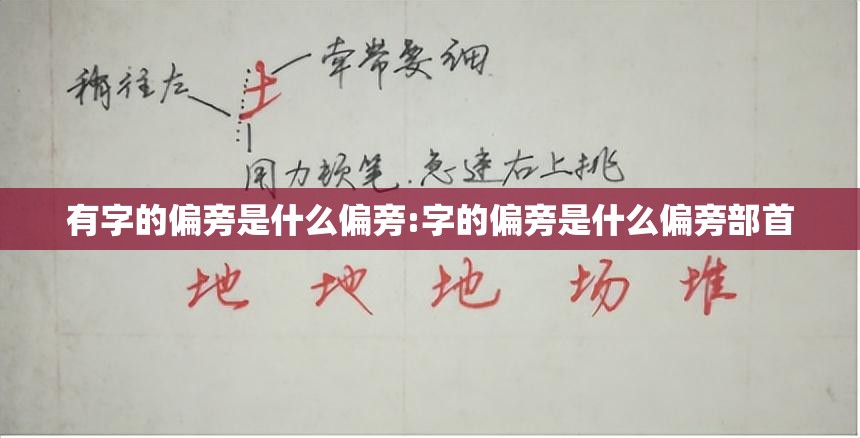 牵带要细
稍往左
土
用力顿笔.急速右上挑
有字的偏旁是什么偏旁:字的偏旁是什么偏旁部首
地 地 地 场 堆